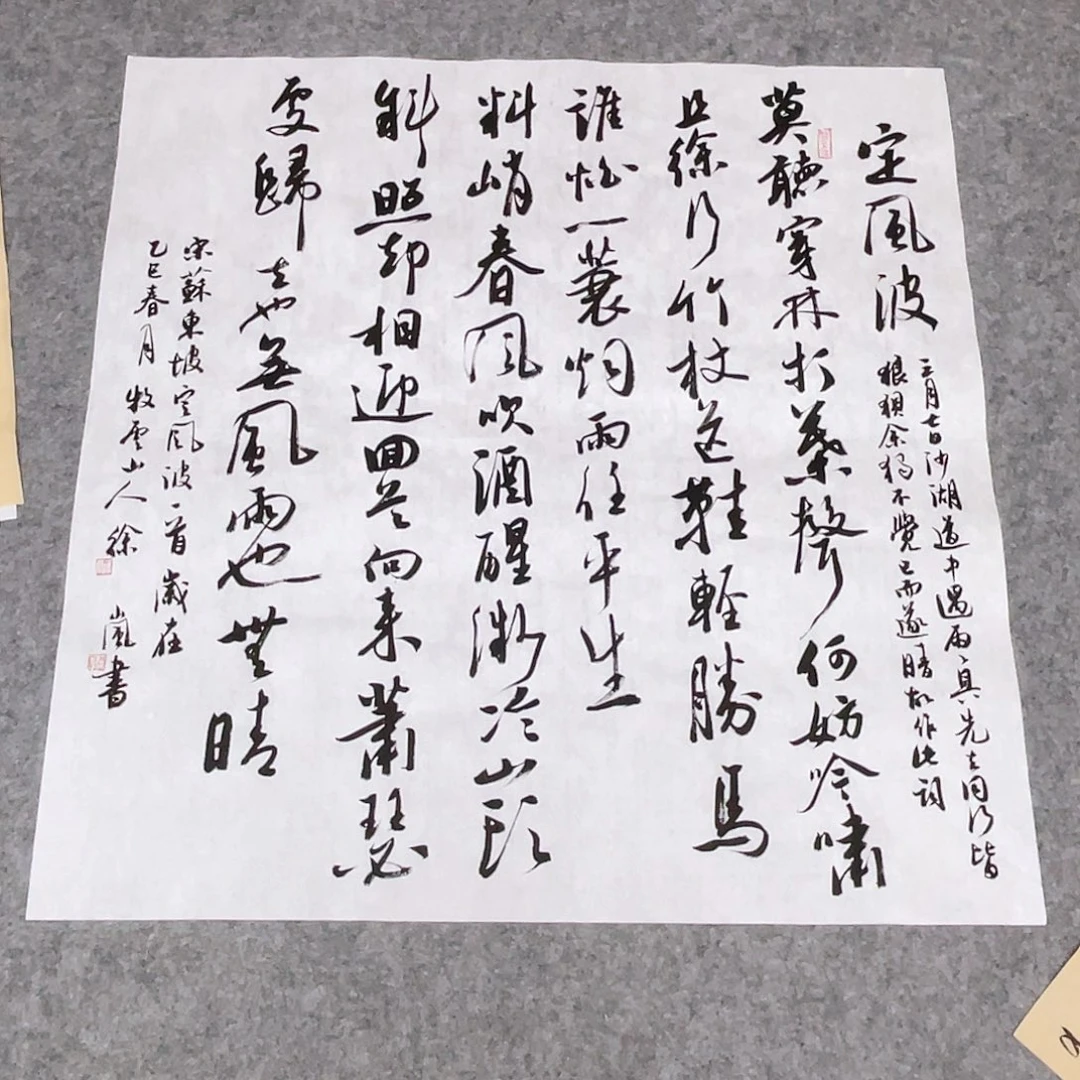 定風波
三月七日沙湖道中遇雨〻具先去同行皆
狼狽余獨不覺已而遂晴故作此詞
莫聽穿林打葉聲何妨吟嘯
且徐行竹杖芒鞋輕勝馬
誰怕一蓑烟雨任平生
料峭春風吹酒醒微冷山頭
斜照却相迎回首向來蕭瑟
處歸去也無風雨也無晴
宋蘇東坡定風波一首歲在
乙巳春月牧雲山人徐嵐書